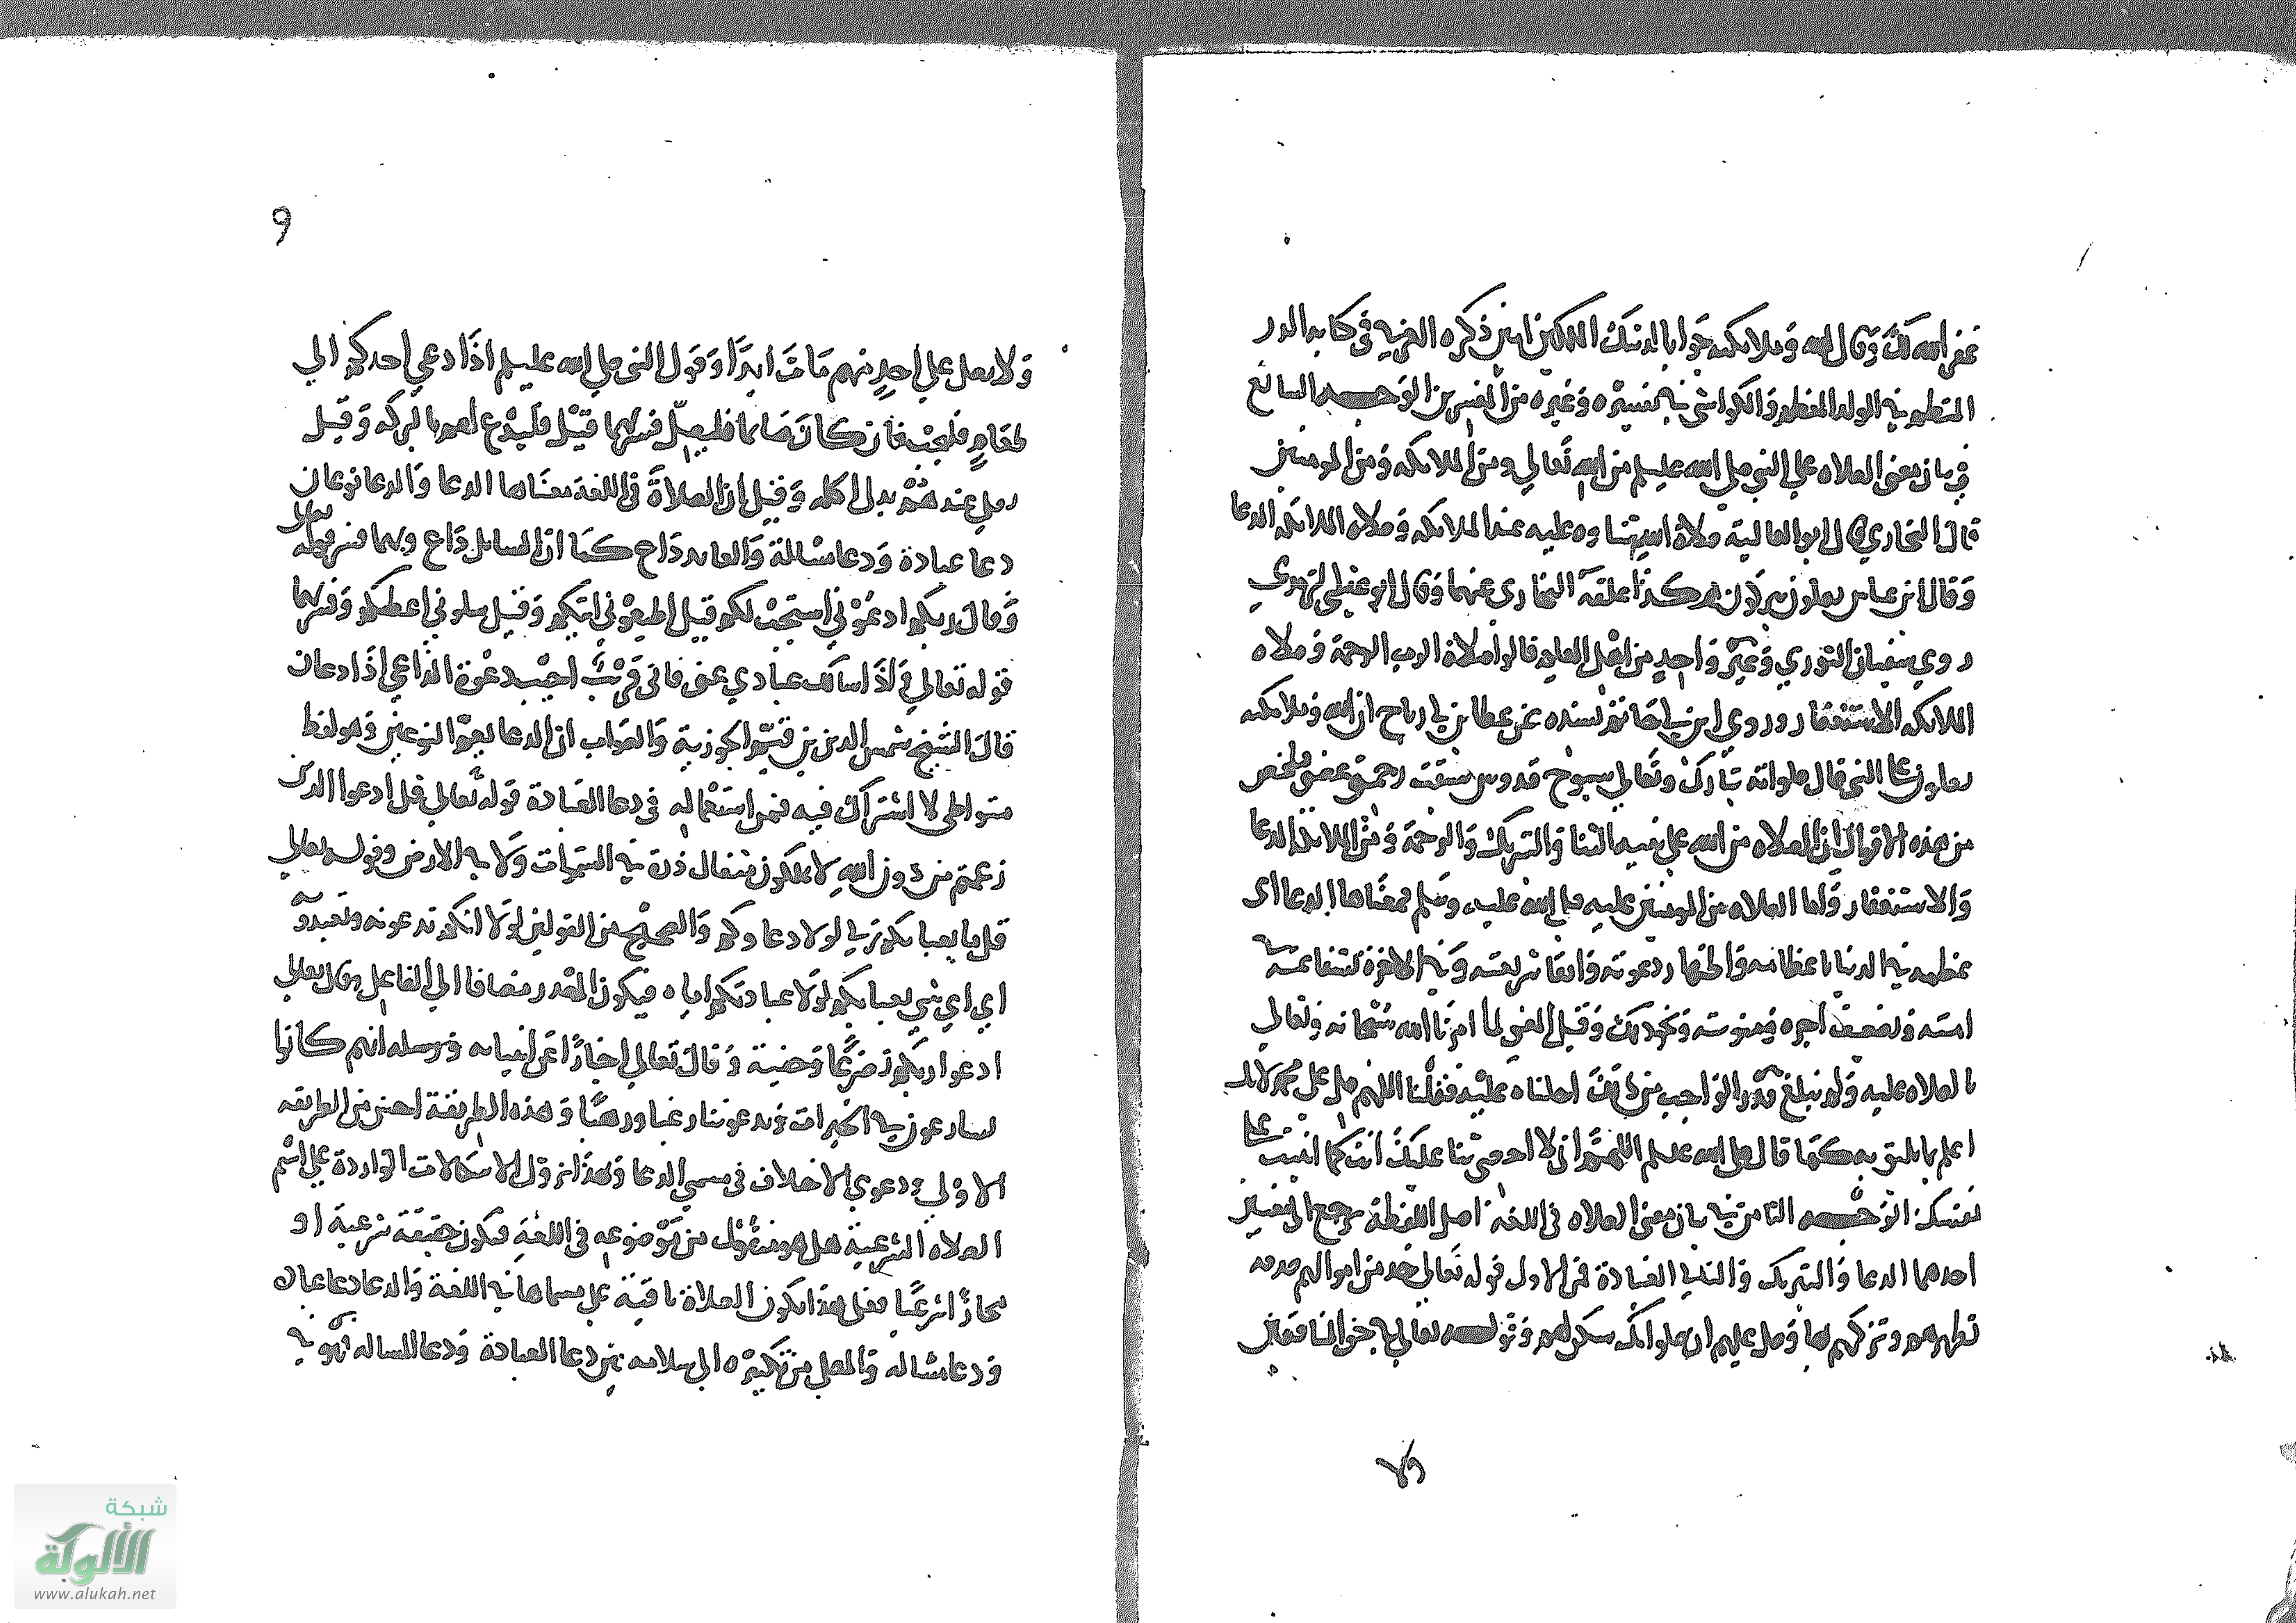 غفر الله لك وقال الله وملائكته جوابا لذينك الملكين امين ذكره العزفي في كتابه الدر
المنظم في المولد المعظم والكواشي في تفسيره وغيره من المفسرين الوجه السابع
في بيان معنى الصلاه على النبي صلى الله عليه وسلم من الله تعالى ومن الملائكه ومن المومنين
قال البخاري قال ابو العالية صلاة الله ثناوه عليه عند الملائكه وصلاه الملائكه الدعا
وقال ابن عباس يصلون يبركون هكذا علقه البخاري عنهما وقال ابو عيسى الترمذي
روي سفيان الثوري وغير واحد من اهل العلم قالوا صلاة الرب الرحمة وصلاه
الملائكه الاستغفار وروي ابن ابي حاتم بسنده عن عطا بن ابي رباح ان الله وملائكته
يصلون على النبي قال صلواته تبارك وتعالى سبوح قدوس سبقت رحمتي غضبي فلخص
من هذه الاقوال ان الصلاه من الله على نبيه الثنا والتبريك والرحمة ومن الملائكة الدعا
والاستغفار واما الصلاه من المومنين عليه صلى الله عليه وسلم فمعناها الدعا اي
عظمه في الدنيا باعطائه واظهار دعوته وابقا شريعته وفي الاخرة بشفاعته في
امته وتضعيف اجره ومثوبته ونحو ذلك وقيل المعنى لما امرنا الله سبحانه وتعالى
بالصلاه عليه ولم نبلغ قدر الواجب من ذلك احلناه عليه فقلنا اللهم صل على محمد لانك
اعلم بما يليق به كما قال صلى الله عليه وسلم اللهم اني لا احصي ثنا عليك انت كما اثنيت على
نفسك الوجه الثامن في بيان معنى الصلاه في اللغة اصل اللفظة يرجع الى معنيين
احدهما الدعا والتبريك والثاني العبادة فمن الاول قوله تعالى خذ من اموالهم صدقه
تطهرهم وتزكيهم بها وصل عليهم ان صلواتك سكن لهم وقوله تعالى في حق المنافقين
ولا
9
ولا تصل على احد منهم مات ابدا وقول النبي صلى الله عليه وسلم اذا دعي احدكم الى
طعام فليجب فان كان صائما فليصل فسر بهما قيل فليدع لهم بالبركه وقيل
يصلي عندهم بدل اكله وقيل ان الصلاة في اللغة معناها الدعا والدعا نوعان
دعا عبادة ودعا مسالة والعابد داع كما ان السائل داع وبهما فسر قوله تعالى
وقال ربكم ادعوني استجب لكم قيل اطيعوني اثبكم وقيل سلوني اعطكم وفسر بهما
قوله تعالى واذا سالك عبادي عني فاني قريب اجيب دعوة الداعي اذا دعان
قال الشيخ شمس الدين بن قيم الجوزية والصواب ان الدعا يعم النوعين وهو لفظ
متواطي لا اشتراك فيه فمن استعماله في دعا العبادة قوله تعالى قل ادعوا الذين
زعمتم من دون الله لا يملكون مثقال ذرة في السموات ولا في الارض وقوله تعالى
قل ما يعبا بكم ربي لولا دعاوكم والصحيح من القولين لولا انكم تدعونه وتعبدونه
اي اي شي يعبا بكم لولا عبادتكم اياه فيكون المصدر مضافا الى الفاعل وقال تعالى
ادعوا ربكم تضرعا وخفية وقال تعالى اخبارا عن انبيائه ورسله انهم كانوا
يسارعون في الخيرات ويدعوننا رغبا ورهبا وهذه الطريقة احسن من الطريقه
الاولى ودعوي الاختلاف في مسمى الدعا وبهذا تزول الاشكالات الواردة على اسم
الصلاه الشرعية هل هو منقول من موضوعه في اللغة فيكون حقيقة شرعية او
مجازا شرعيا فعلى هذا تكون الصلاة باقية على مسماها في اللغة والدعا دعا عباده
ودعا مساله والمصلي من تكبيره الى سلامه بين دعا العبادة ودعا المساله فهو في
شبكة
الألوكة
www.alukah.net